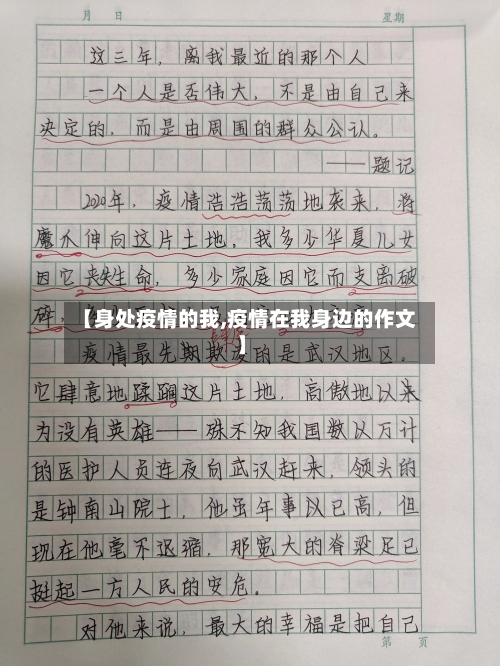 月 日 星期
这三年,离我最近的那个人
一个人是否伟大,不是由自己来
决定的,而是由周围的群众公认。
——题记
2020年,疫情浩浩荡荡地袭来,将
魔爪伸向这片土地,我多少华夏儿女
因它丧失生命,多少家庭因它而支离破
碎,
【身处疫情的我,疫情在我身边的作文
】
疫情最先期欺凌的是武汉地区。
它肆意地蹂躏这片土地,高傲地以来
为没有英雄——殊不知我国数以万计
的医护人员连夜向武汉赶来,领头的
是钟南山院士,他虽年事以已高,但
现在他毫不退缩,那宽大的脊梁足已
挺起一方人民的安危。
对他来说,最大的幸福是把自己
第 页